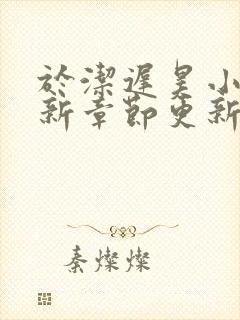 於潔遲昊小
新章節更新
秦燦燦